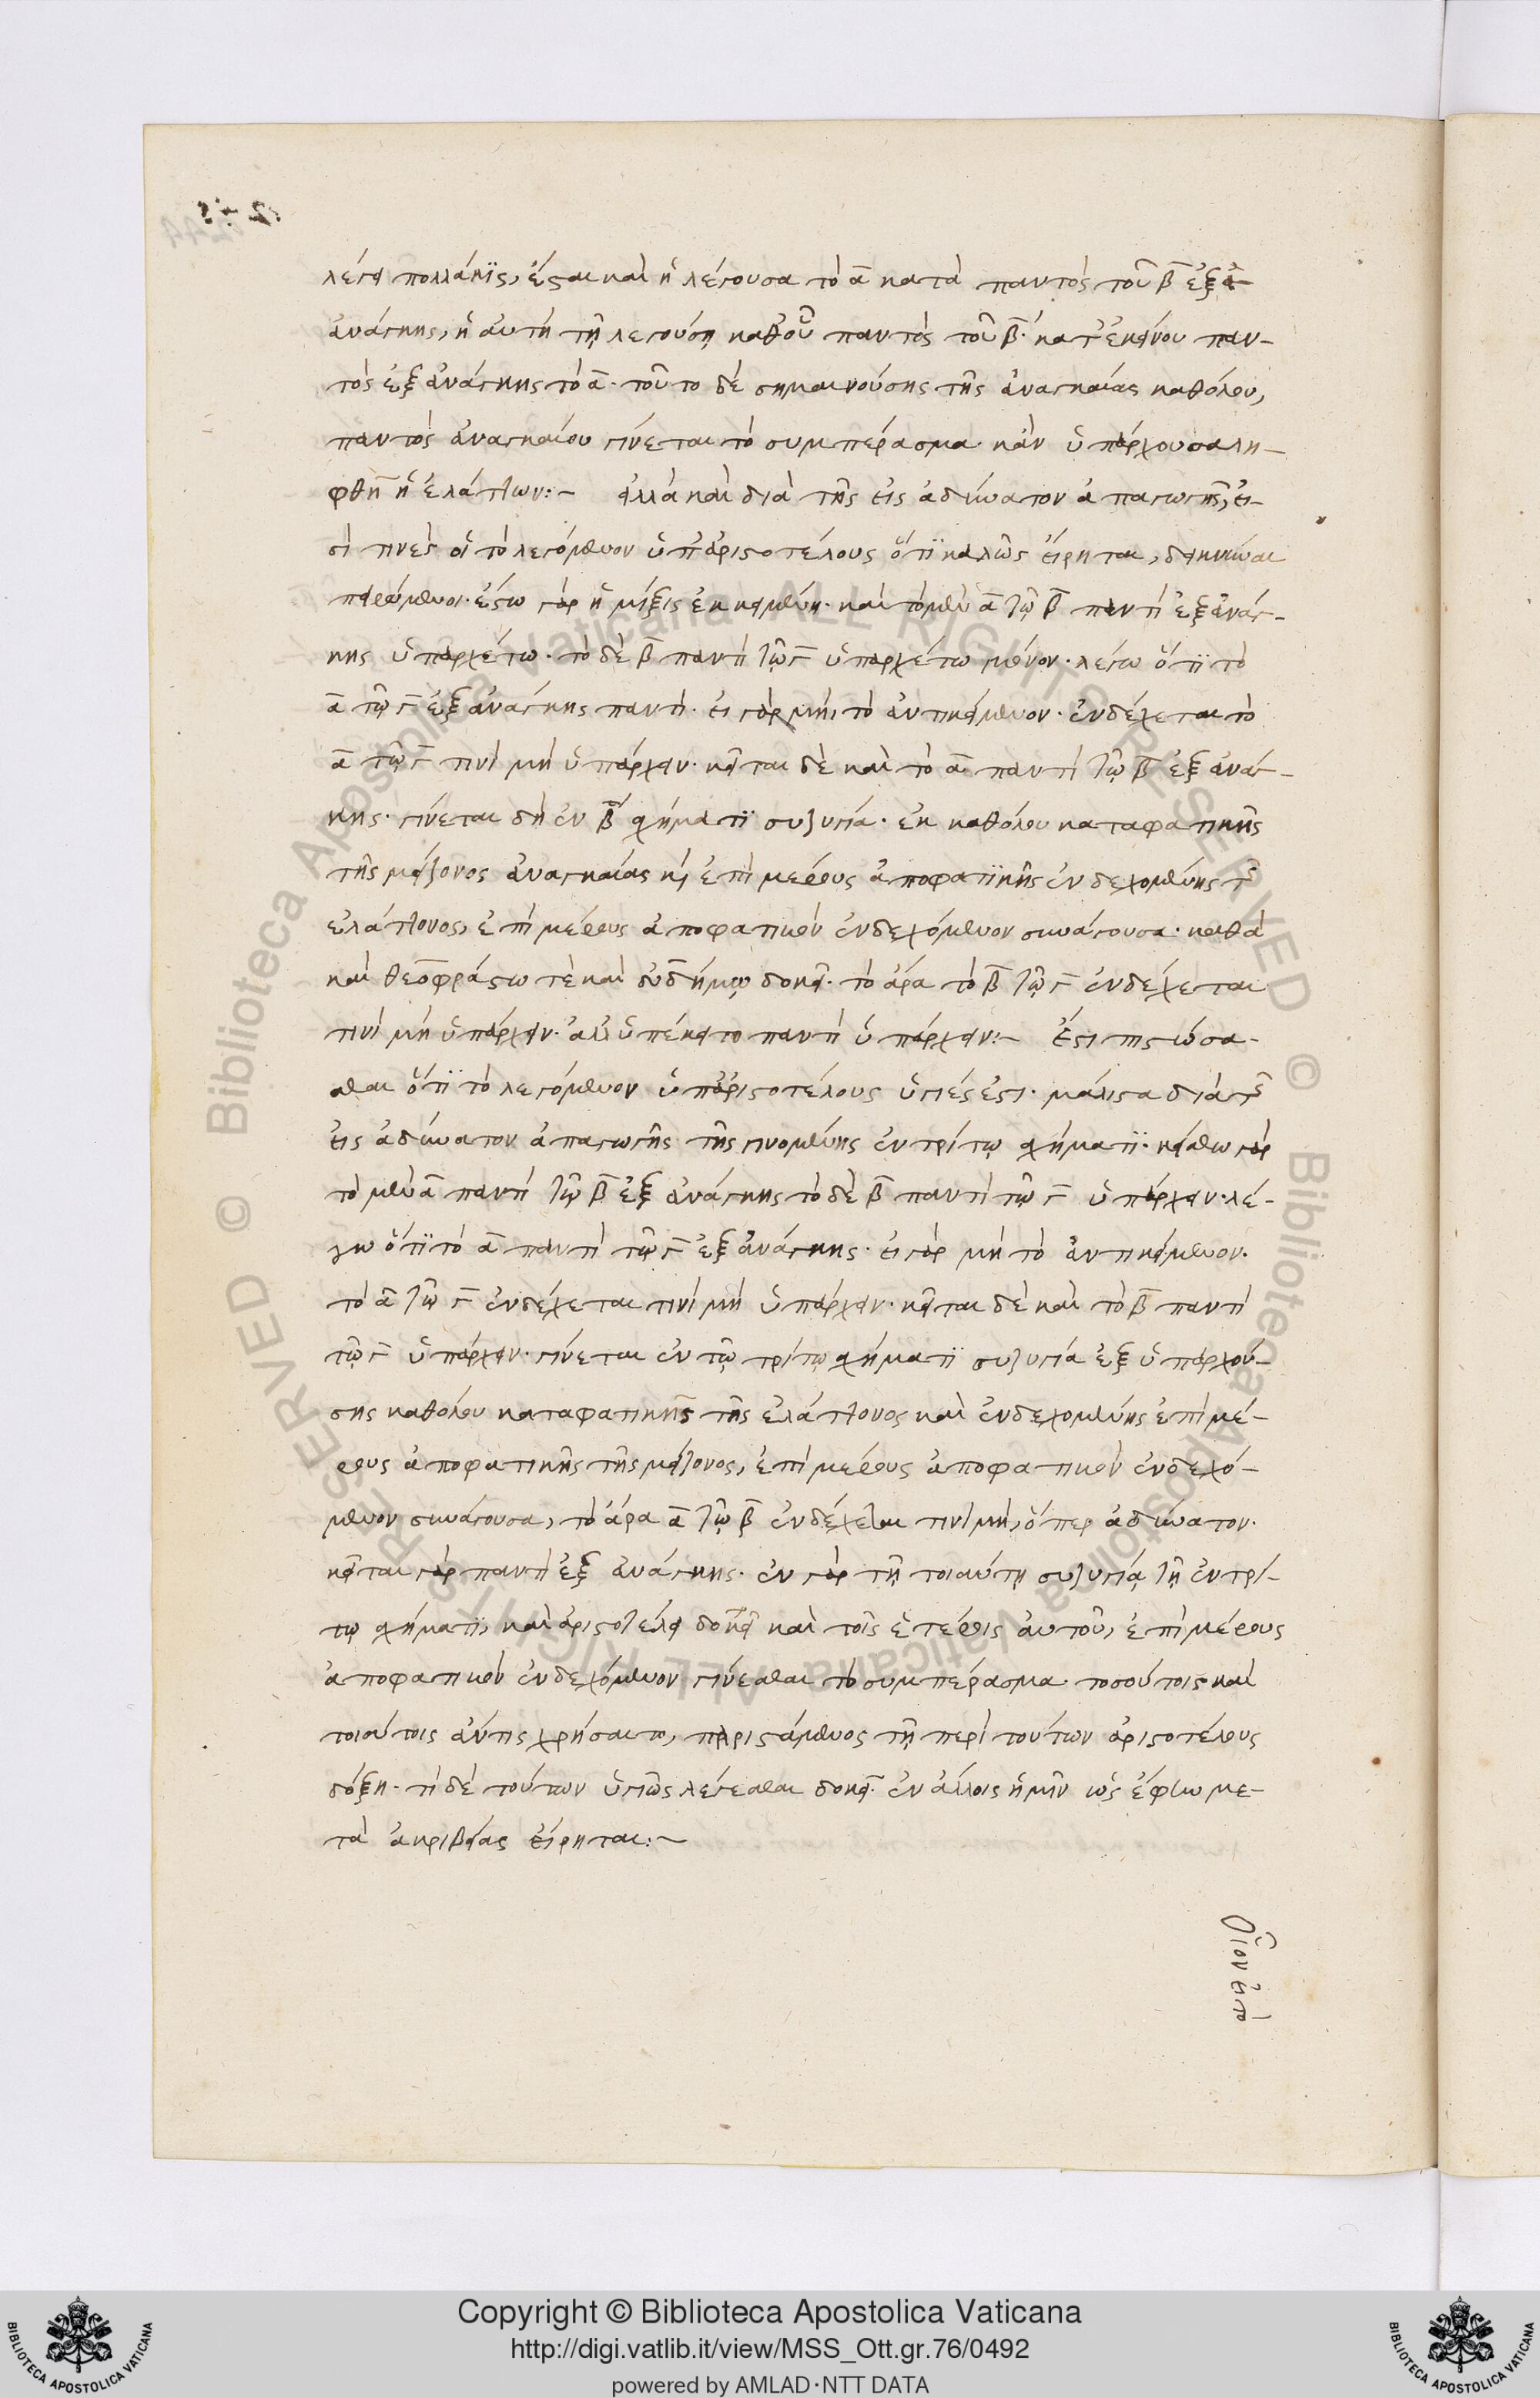 λέγει πολλάκϊς, ἔσται καὶ ἡ λέγουσα τὸ α̅ κατὰ παντὸς τοῦ β̅ ἐξ
ἀνάγκης, ἡ αὐτὴ τῇ λεγούσῃ καθ' οὗ παντὸς τοῦ β̅· κατ' ἐκείνου παν-
τὸς ἐξ ἀνάγκης τὸ α̅· τοῦτο δὲ σημαινούσης τῆς ἀναγκαίας καθόλου,
παντὸς ἀναγκαίου γίνεται τὸ συμπέρασμα· κἂν ὑπάρχουσα λη-
φθῆ ἡ ἐλάττων:- ἀλλὰ καὶ διὰ τῆς εἰς ἀδύνατον ἀπαγωγῆς, εἰ-
σὶ τινὲς οἳ τὸ λεγόμενον ὑπ' ἀριστοτέλους ὅτϊ καλῶς εἴρηται, δεικνύναι
πειρώμενοι· ἔστω γὰρ ἡ μίξις ἐκκειμένη· καὶ τὸ μὲν α̅ τῷ β̅ παντὶ ἐξ ἀνάγ-
κης ὑπαρχέτω· τὸ δὲ β̅ παντὶ τῷ γ̅ ὑπαρχέτω μόνον· λέγω ὅτϊ τὸ
α̅ τῷ γ̅ ἐξ ἀνάγκης παντὶ· εἰ γὰρ μὴ, τὸ ἀντικείμενον· ἐνδέχεται τὸ
α̅ τῷ γ̅ τινὶ μὴ ὑπάρχειν· κεῖται δὲ καὶ τὸ α̅ παντὶ τῷ β̅ ἐξ ἀνάγ-
κης· γίνεται δὴ ἐν β̅ῳ σχήματϊ συζυγία· ἐκ καθόλου καταφατικῆς
τῆς μείζονος ἀναγκαίας κ̀ ἐπὶ μέρους ἀποφατϊκῆς ἐνδεχομένης τῆς
ἐλάττονος, ἐπὶ μέρους ἀποφατικὸν ἐνδεχόμενον συνάγουσα· καθὰ
καὶ θεοφράστω τὲ καὶ εὐδήμῳ δοκεῖ· τὸ ἄρα τὸ β̅ τῷ γ̅ ἐνδέχεται
τινὶ μὴ ὑπάρχειν· ἀλλ' ὑπέκειτο παντὶ ὑπάρχειν:- Ἔστι πιστώσα-
σθαι ὅτϊ τὸ λεγόμενον ὑπ' ἀριστοτέλους ὑγιές ἐστι· μάλιστα διὰ τῆς
εἰς ἀδύνατον ἀπαγωγῆς τῆς γινομένης ἐν τρίτῳ σχήματϊ· κείσθω γὰρ
τὸ μὲν α̅ παντὶ τῷ β̅ ἐξ ἀνάγκης τὸ δὲ β̅ παντὶ τῷ γ̅ ὑπάρχειν· λέ-
γω ὅτϊ τὸ α̅ παντὶ τῷ γ̅ ἐξ ἀνάγκης· εἰ γὰρ μὴ τὸ ἀντικείμενον·
τὸ α̅ τῷ γ̅ ἐνδέχεται τινὶ μὴ ὑπάρχειν· κεῖται δὲ καὶ τὸ β̅ παντὶ
τῷ γ̅ ὑπάρχειν· γίνεται ἐν τῷ τρίτῳ σχήματϊ συζυγία ἐξ ὑπαρχού-
σης καθόλου καταφατικῆς τῆς ἐλάττονος καὶ ἐνδεχομένης ἐπὶ μέ-
ρους ἀποφατικῆς τῆς μείζονος, ἐπὶ μέρους ἀποφατικὸν ἐνδεχό-
μενον συνάγουσα, τὸ ἄρα α̅ τῷ β̅ ἐνδέχεται τινὶ μὴ, ὅπερ ἀδύνατον·
κεῖται γὰρ παντὶ ἐξ ἀνάγκης· ἐν γὰρ τῇ τοιαύτῃ συζυγίᾳ τῇ ἐν τρί-
τῳ σχήματϊ, καὶ ἀριστοτέλει δοκεῖ καὶ τοῖς ἑτέροις αὐτοῦ, ἐπὶ μέρους
ἀποφατικὸν ἐνδεχόμενον γίνεσθαι τὸ συμπέρασμα· τοσούτοις καὶ
τοιούτοις ἄν τις χρήσαιτο, παριστάμενος τῇ περὶ τούτων ἀριστοτέλους
δόξη· τὶ δὲ τούτων ὑγιῶς λέγεσθαι δοκεῖ· ἐν ἄλλοις ἡμῖν ὡς ἔφην με-
τὰ ἀκριβείας εἴρηται:-
Οἷον εἰ τὸ
Copyright © Biblioteca Apostolica Vaticana
http://digi.vatlib.it/view/MSS_Ott.gr.76/0492
powered by AMLAD·NTT DATA